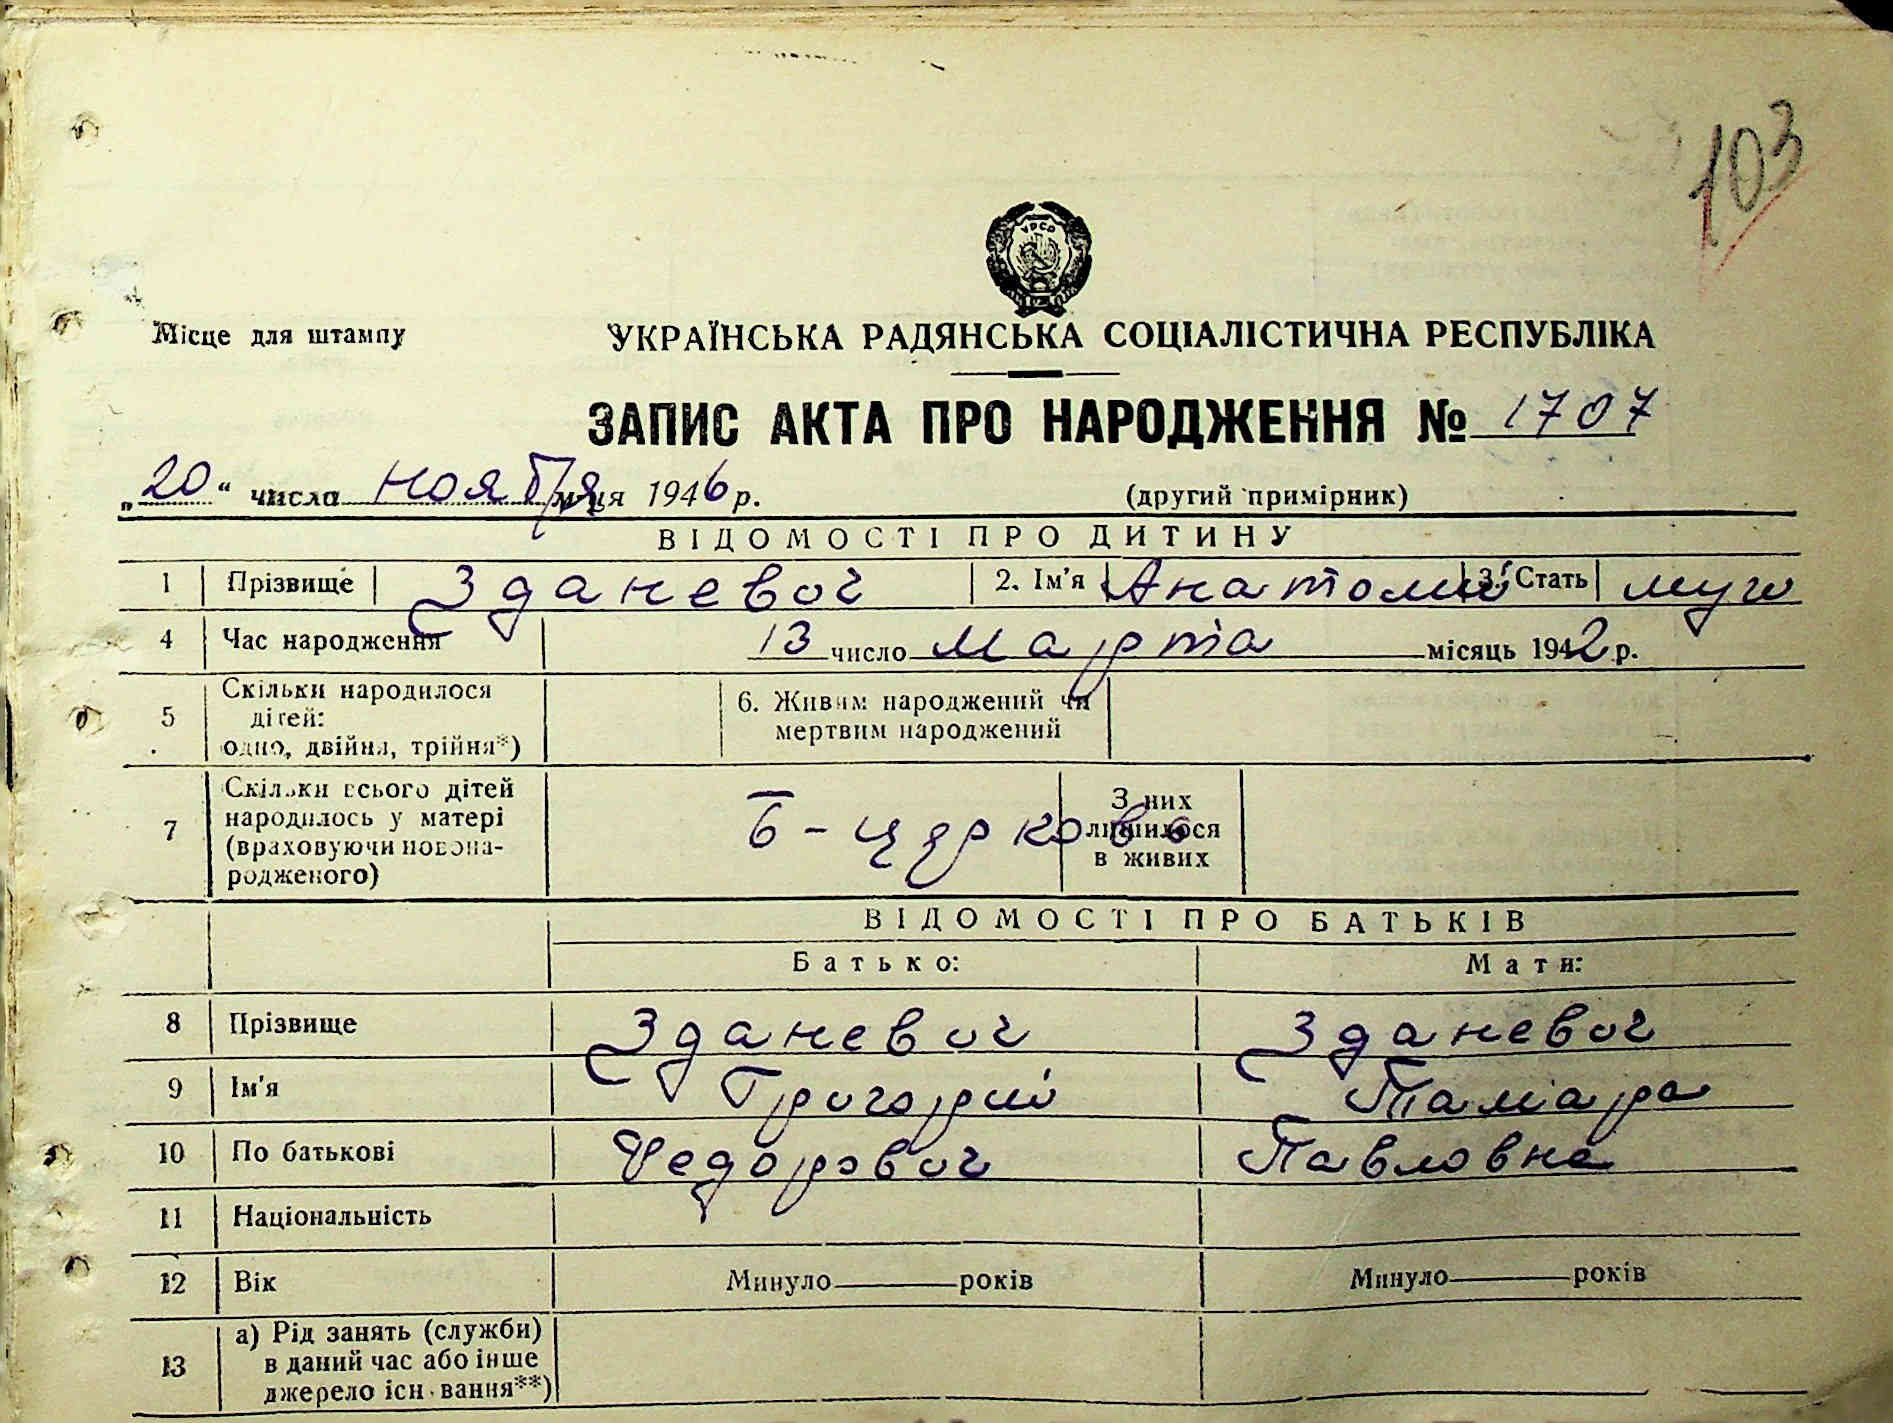 103
УРСР
Місце для штампу
УКРАЇНСЬКА РАДЯНСЬКА СОЦІАЛІСТИЧНА РЕСПУБЛІКА
ЗАПИС АКТА ПРО НАРОДЖЕННЯ № 1707
„20“ числа ноября м-ця 1946 р. (другий примірник)
ВІДОМОСТІ ПРО ДИТИНУ
1 Прізвище Зданевич 2. Ім'я Анатолий 3. Стать муж
4 Час народження 13 число марта місяць 1942 р.
5 Скільки народилося дітей: одно, двійня, трійня*) 6. Живим народжений чи мертвим народжений
7 Скільки всього дітей народилось у матері (враховуючи новонародженого) Б-церковь З них лишилося в живих
ВІДОМОСТІ ПРО БАТЬКІВ
Батько: Мати:
8 Прізвище Зданевич Зданевич
9 Ім'я Григорий Тамара
10 По батькові Федорович Павловна
11 Національність
12 Вік Минуло років Минуло років
13 а) Рід занять (служби) в даний час або інше джерело існування**)